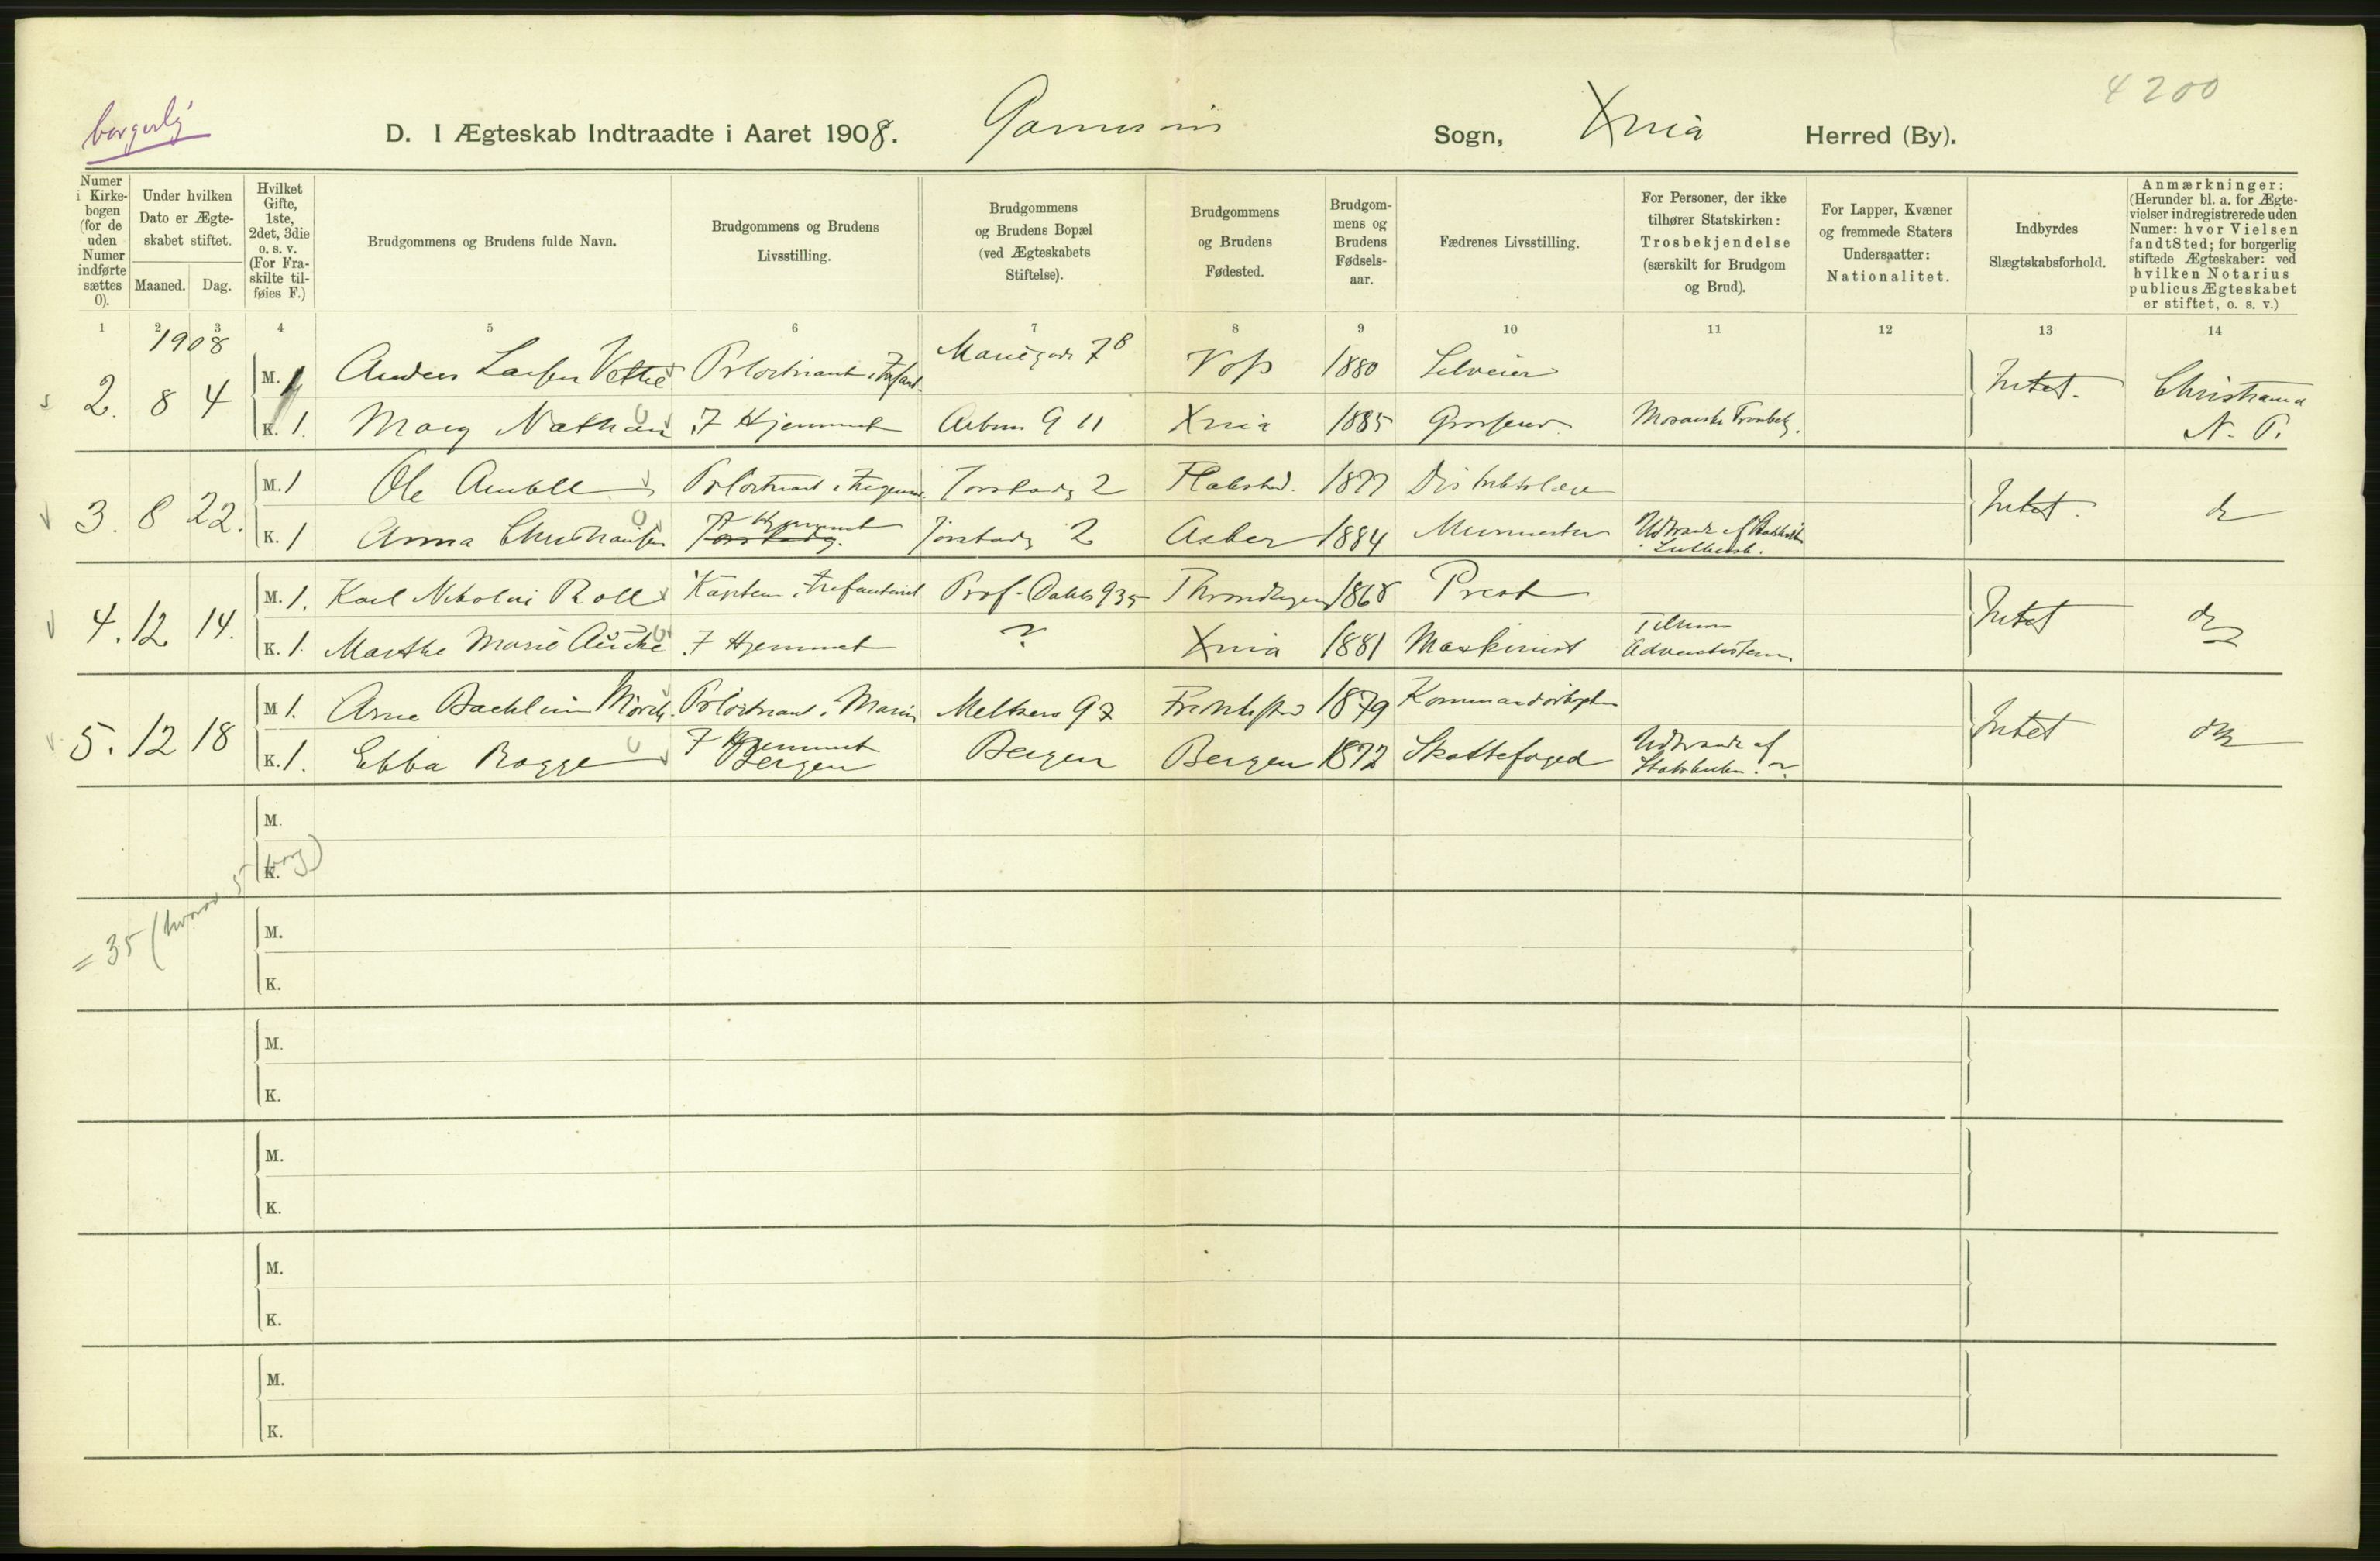 4200
borgerlig
D. I Ægteskab Indtraadte i Aaret 1908. Garnisons Sogn, Xnia Herred (By).
Numer i Kirkebogen (for de uden Numer indførte sættes 0).
Under hvilken Dato er Ægteskabet stiftet.
Maaned. Dag.
Hvilket Gifte, 1ste, 2det, 3die o. s. v. (For Fraskilte tilføies F.)
Brudgommens og Brudens fulde Navn.
Brudgommens og Brudens Livsstilling.
Brudgommens og Brudens Bopæl (ved Ægteskabets Stiftelse).
Brudgommens og Brudens Fødested.
Brudgommens og Brudens Fødselsaar.
Fædrenes Livsstilling.
For Personer, der ikke tilhører Statskirken: Trosbekjendelse (særskilt for Brudgom og Brud).
For Lapper, Kvæner og fremmede Staters Undersaatter: Nationalitet.
Indbyrdes Slægtskabsforhold.
Anmærkninger: (Herunder bl. a. for Ægtevielser indregistrerede uden Numer: hvor Vielsen fandt Sted; for borgerlig stiftede Ægteskaber: ved hvilken Notarius publicus Ægteskabet er stiftet, o. s. v.)
1 2 3 4 5 6 7 8 9 10 11 12 13 14
1908
2. 8 4 M. 1 Anders Larsen Vethe Prløitnant i Infant. 7B Voss 1880 Selveier Intet. Christiania N. P.
K. 1. Mary Nathan I Hjemmet 11 Xnia 1885 Grosserer Mosaiske Trosbek.
3. 8 22. M. 1 Ole Amble Prløitnant i Torstadg 2 Flakstad. 1877 Distriktslæge Intet. do
K. 1 Anna Christiansen I Hjemmet Torstadg 2 Asker 1884 Murmester Udtraadt af Statskirken
4. 12 14. M. 1. Karl Nikolai Roll Kaptein i Infanteriet Prof. Dahls g 35 Throndhjem 1868 Prest Intet do
K. 1. Marthe Marie I Hjemmet ? Xnia 1881 Maskinist Adventisterne
5. 12 18 M. 1. Arne Mørch. Prløitnant i Marin Meltzers g 7 Fredrikstad 1879 Kommandørkaptein Intet do
K. 1. Ebba Rogge I Hjemmet Bergen Bergen Bergen 1872 Skattefoged Udtraadt af Statskirken. ?
M.
K.
= 35 (hvorav 5 borg)
M.
K.
M.
K.
M.
K.
M.
K.
M.
K.